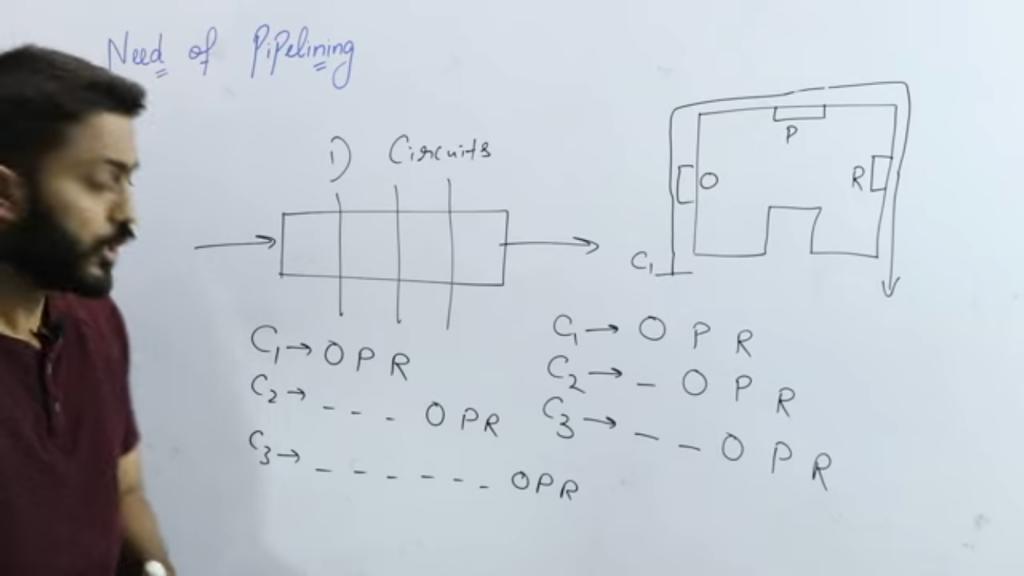 Need of Pipelining
1) Circuits
P
O
R
C1
C1 → O P R
C2 → - - - O P R
C3 → - - - - - - O P R
C1 → O P R
C2 → - O P R
C3 → - - O P R